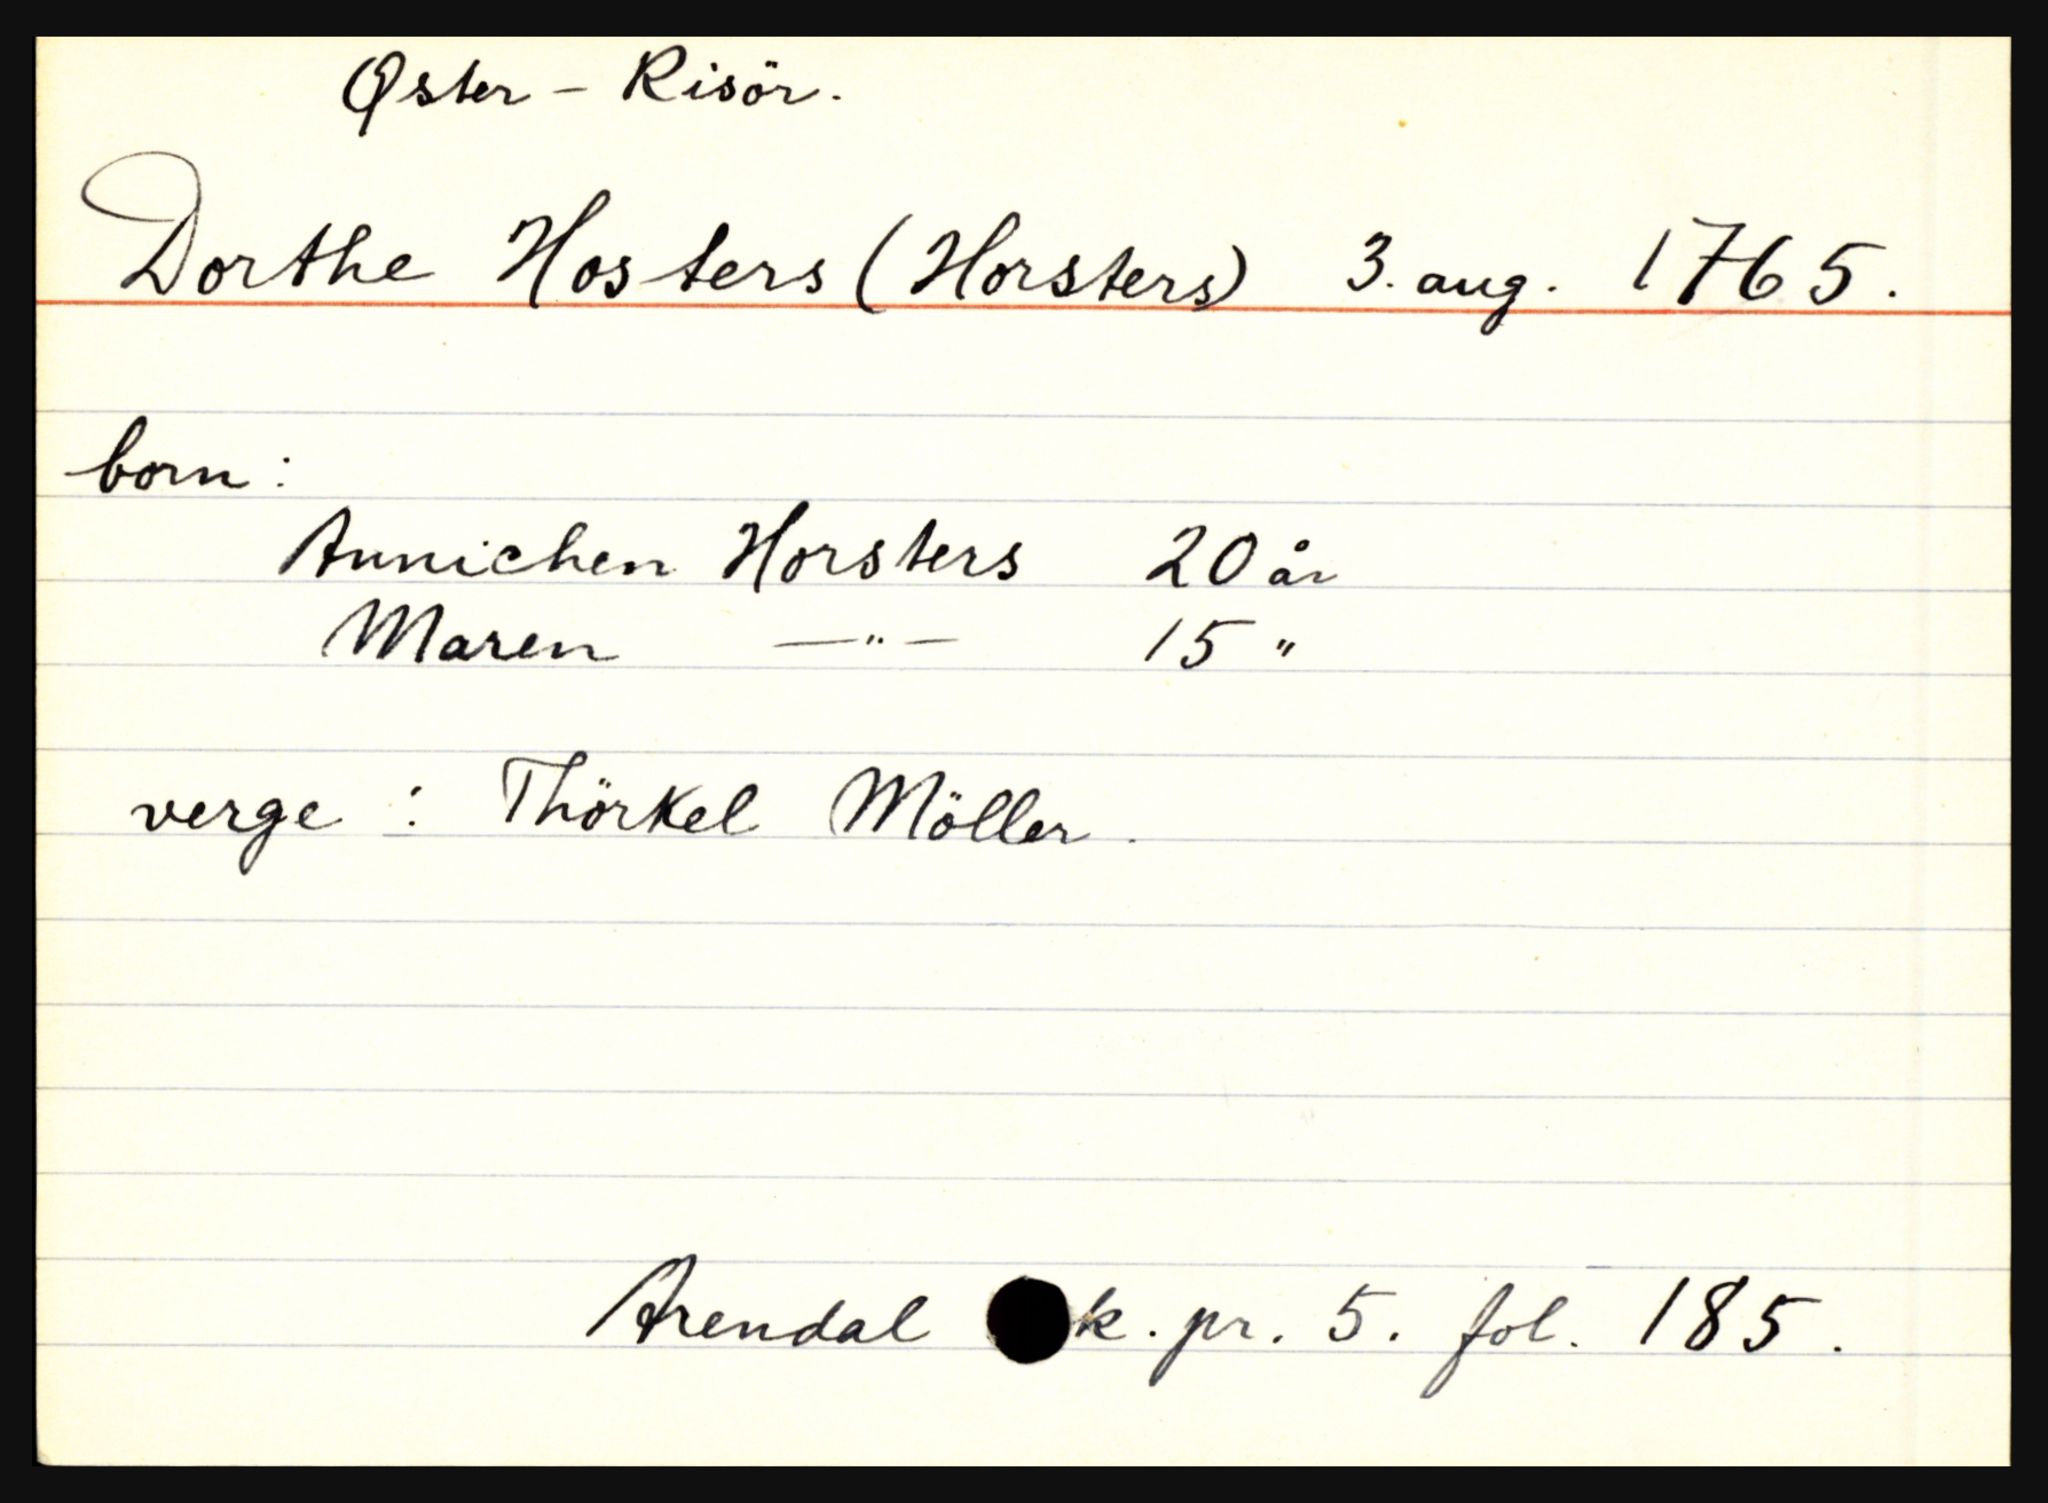 Øster - Risör.
Dorthe Hosters (Horsters) 3. aug. 1765.
born:
Annichen Horsters 20 år
Maren —"— 15 "
verge : Thörkel Möller.
Arendal k. pr. 5. fol. 185.